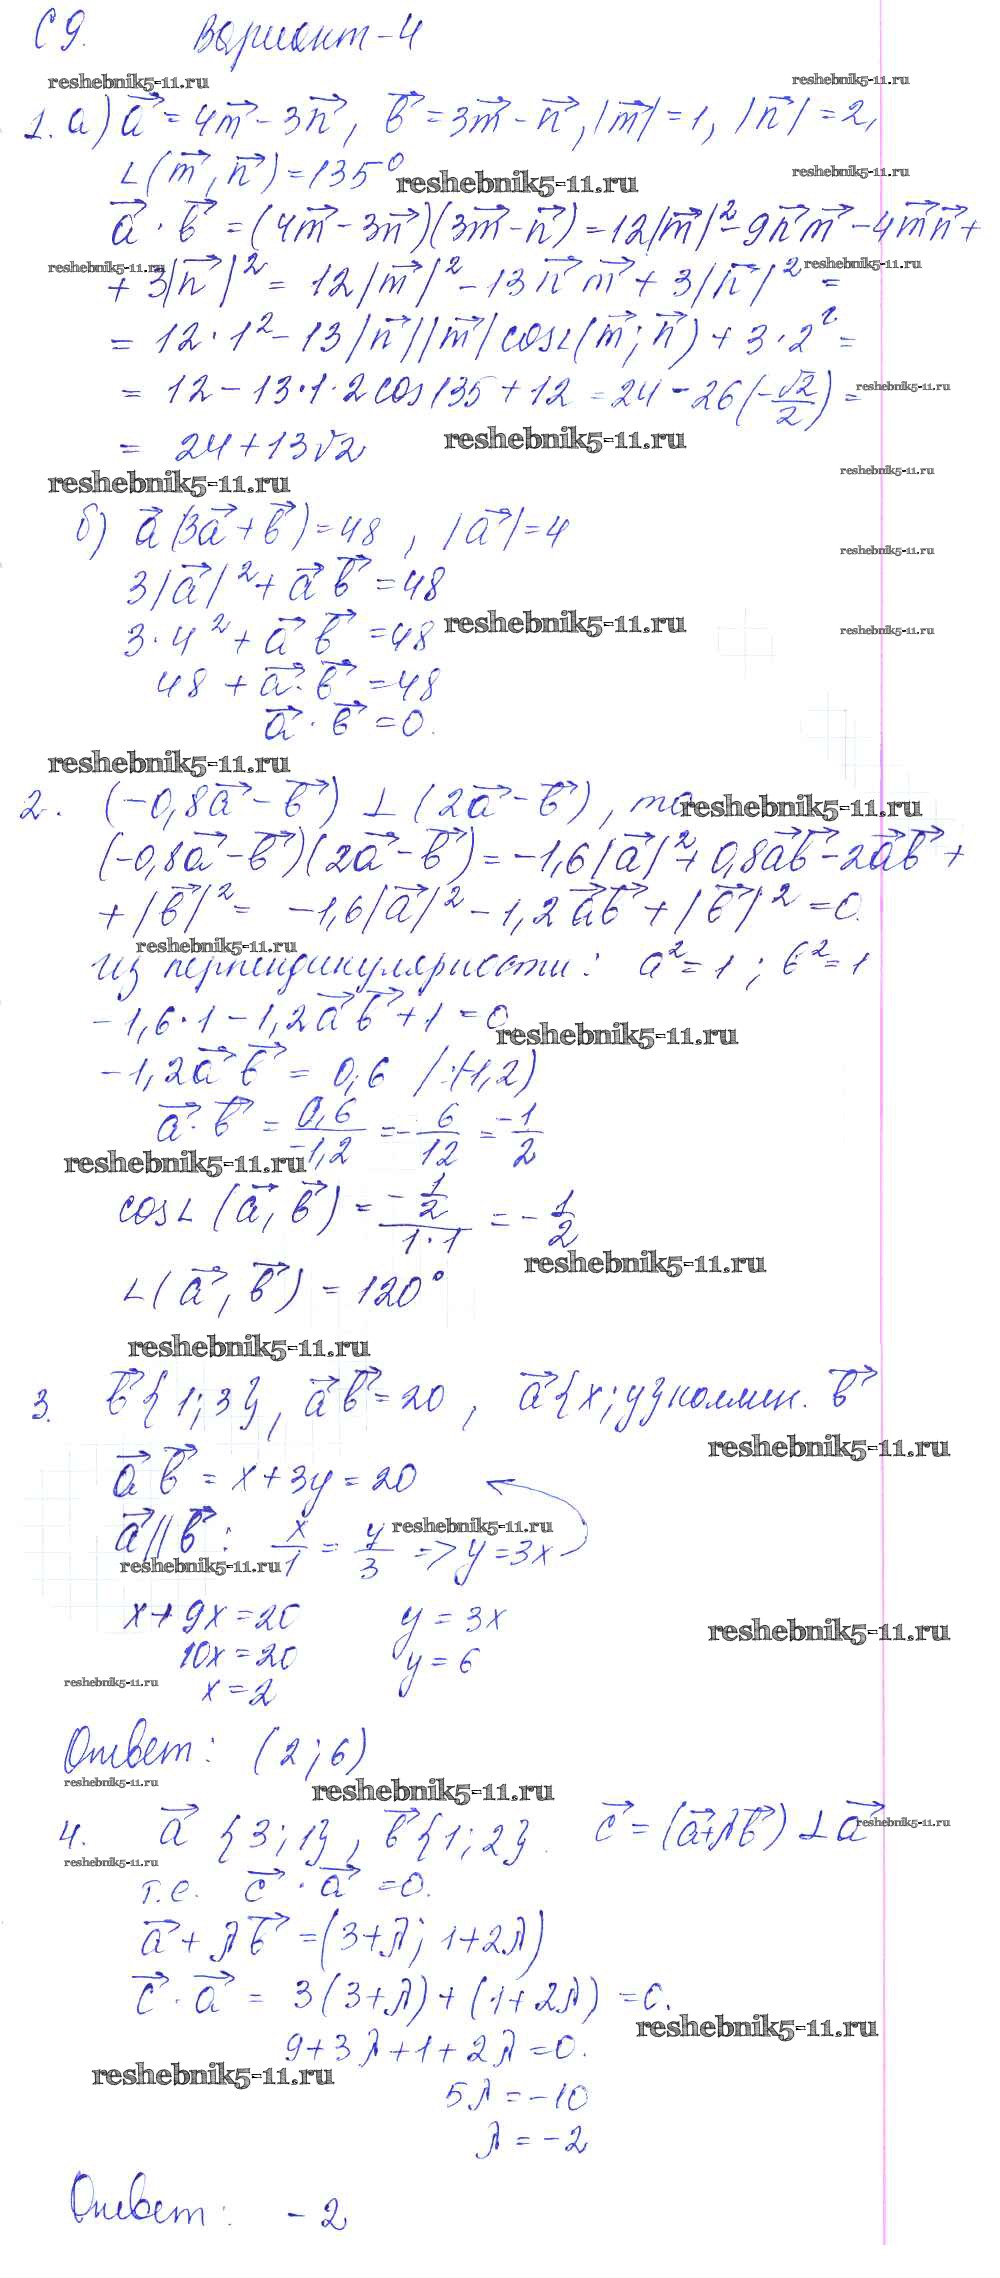 С 9. Вариант-4
reshebnik5-11.ru reshebnik5-11.ru
1. а) a⃗ = 4m⃗ - 3n⃗, b⃗ = 3m⃗ - n⃗, |m⃗| = 1, |n⃗| = 2,
∠(m⃗, n⃗) = 135° reshebnik5-11.ru reshebnik5-11.ru
a⃗ · b⃗ = (4m⃗ - 3n⃗)(3m⃗ - n⃗) = 12|m⃗|² - 9n⃗m⃗ - 4m⃗n⃗ +
reshebnik5-11.ru reshebnik5-11.ru
+ 3|n⃗|² = 12|m⃗|² - 13n⃗m⃗ + 3|n⃗|² =
= 12·1² - 13|n⃗||m⃗|cos∠(m⃗; n⃗) + 3·2² =
= 12 - 13·1·2cos135 + 12 = 24 - 26(-√2/2) = reshebnik5-11.ru
= 24 + 13√2 reshebnik5-11.ru
reshebnik5-11.ru reshebnik5-11.ru
б) a⃗(3a⃗ + b⃗) = 48, |a⃗| = 4
reshebnik5-11.ru
3|a⃗|² + a⃗b⃗ = 48
3·4² + a⃗b⃗ = 48 reshebnik5-11.ru reshebnik5-11.ru
48 + a⃗·b⃗ = 48
a⃗ · b⃗ = 0.
reshebnik5-11.ru
2. (-0,8a⃗ - b⃗) ⊥ (2a⃗ - b⃗), то reshebnik5-11.ru
(-0,8a⃗ - b⃗)(2a⃗ - b⃗) = -1,6|a⃗|² + 0,8a⃗b⃗ - 2a⃗b⃗ +
+ |b⃗|² = -1,6|a⃗|² - 1,2a⃗b⃗ + |b⃗|² = 0.
reshebnik5-11.ru
из перпендикулярности: a² = 1; b² = 1
-1,6·1 - 1,2a⃗b⃗ + 1 = 0 reshebnik5-11.ru
-1,2a⃗b⃗ = 0,6 /:(-1,2)
a⃗·b⃗ = 0,6/-1,2 = -6/12 = -1/2
reshebnik5-11.ru
cos∠(a⃗, b⃗) = (-1/2)/(1·1) = -1/2
reshebnik5-11.ru
∠(a⃗, b⃗) = 120°
reshebnik5-11.ru
3. b⃗{1; 3}, a⃗b⃗ = 20, a⃗{x; y} коллин. b⃗
reshebnik5-11.ru
a⃗b⃗ = x + 3y = 20
a⃗ || b⃗: x/1 = y/3 => y = 3x reshebnik5-11.ru
reshebnik5-11.ru
x + 9x = 20 y = 3x reshebnik5-11.ru
10x = 20 y = 6
reshebnik5-11.ru
x = 2
Ответ: (2; 6)
reshebnik5-11.ru reshebnik5-11.ru
4. a⃗{3; 1}, b⃗{1; 2}. c⃗ = (a⃗+λb⃗) ⊥ a⃗ reshebnik5-11.ru
reshebnik5-11.ru
т.е. c⃗ · a⃗ = 0.
a⃗ + λb⃗ = (3+λ; 1+2λ)
c⃗ · a⃗ = 3(3+λ) + (1+2λ) = 0.
reshebnik5-11.ru
9 + 3λ + 1 + 2λ = 0.
reshebnik5-11.ru
5λ = -10
λ = -2
Ответ: -2